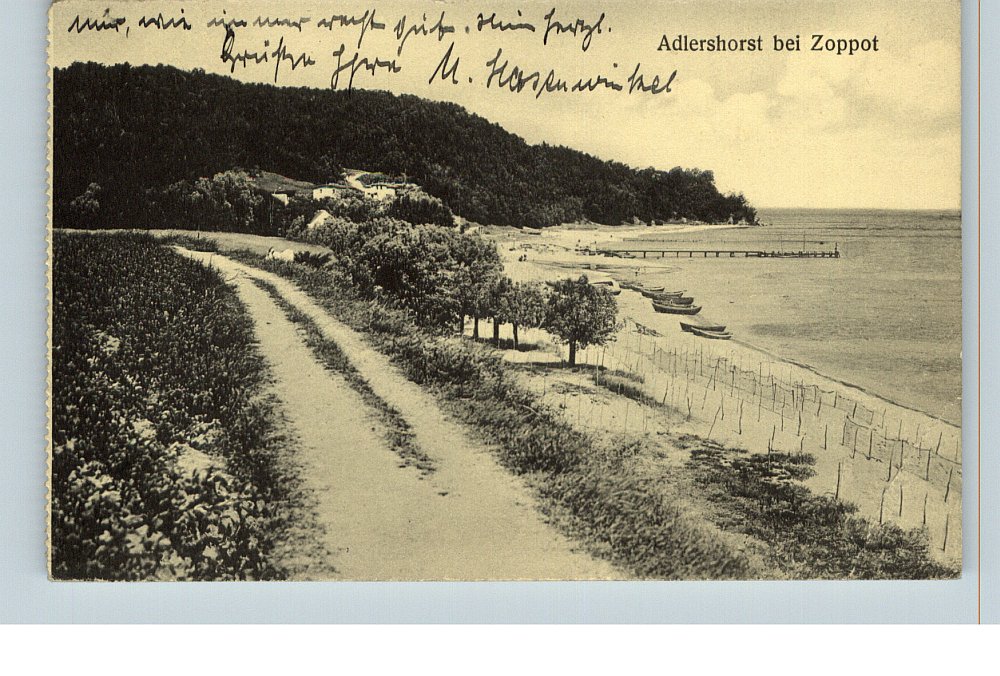 mir, wie immer recht gut. Nun herzl.
Grüße Ihre M. Hasenwinkel
Adlershorst bei Zoppot